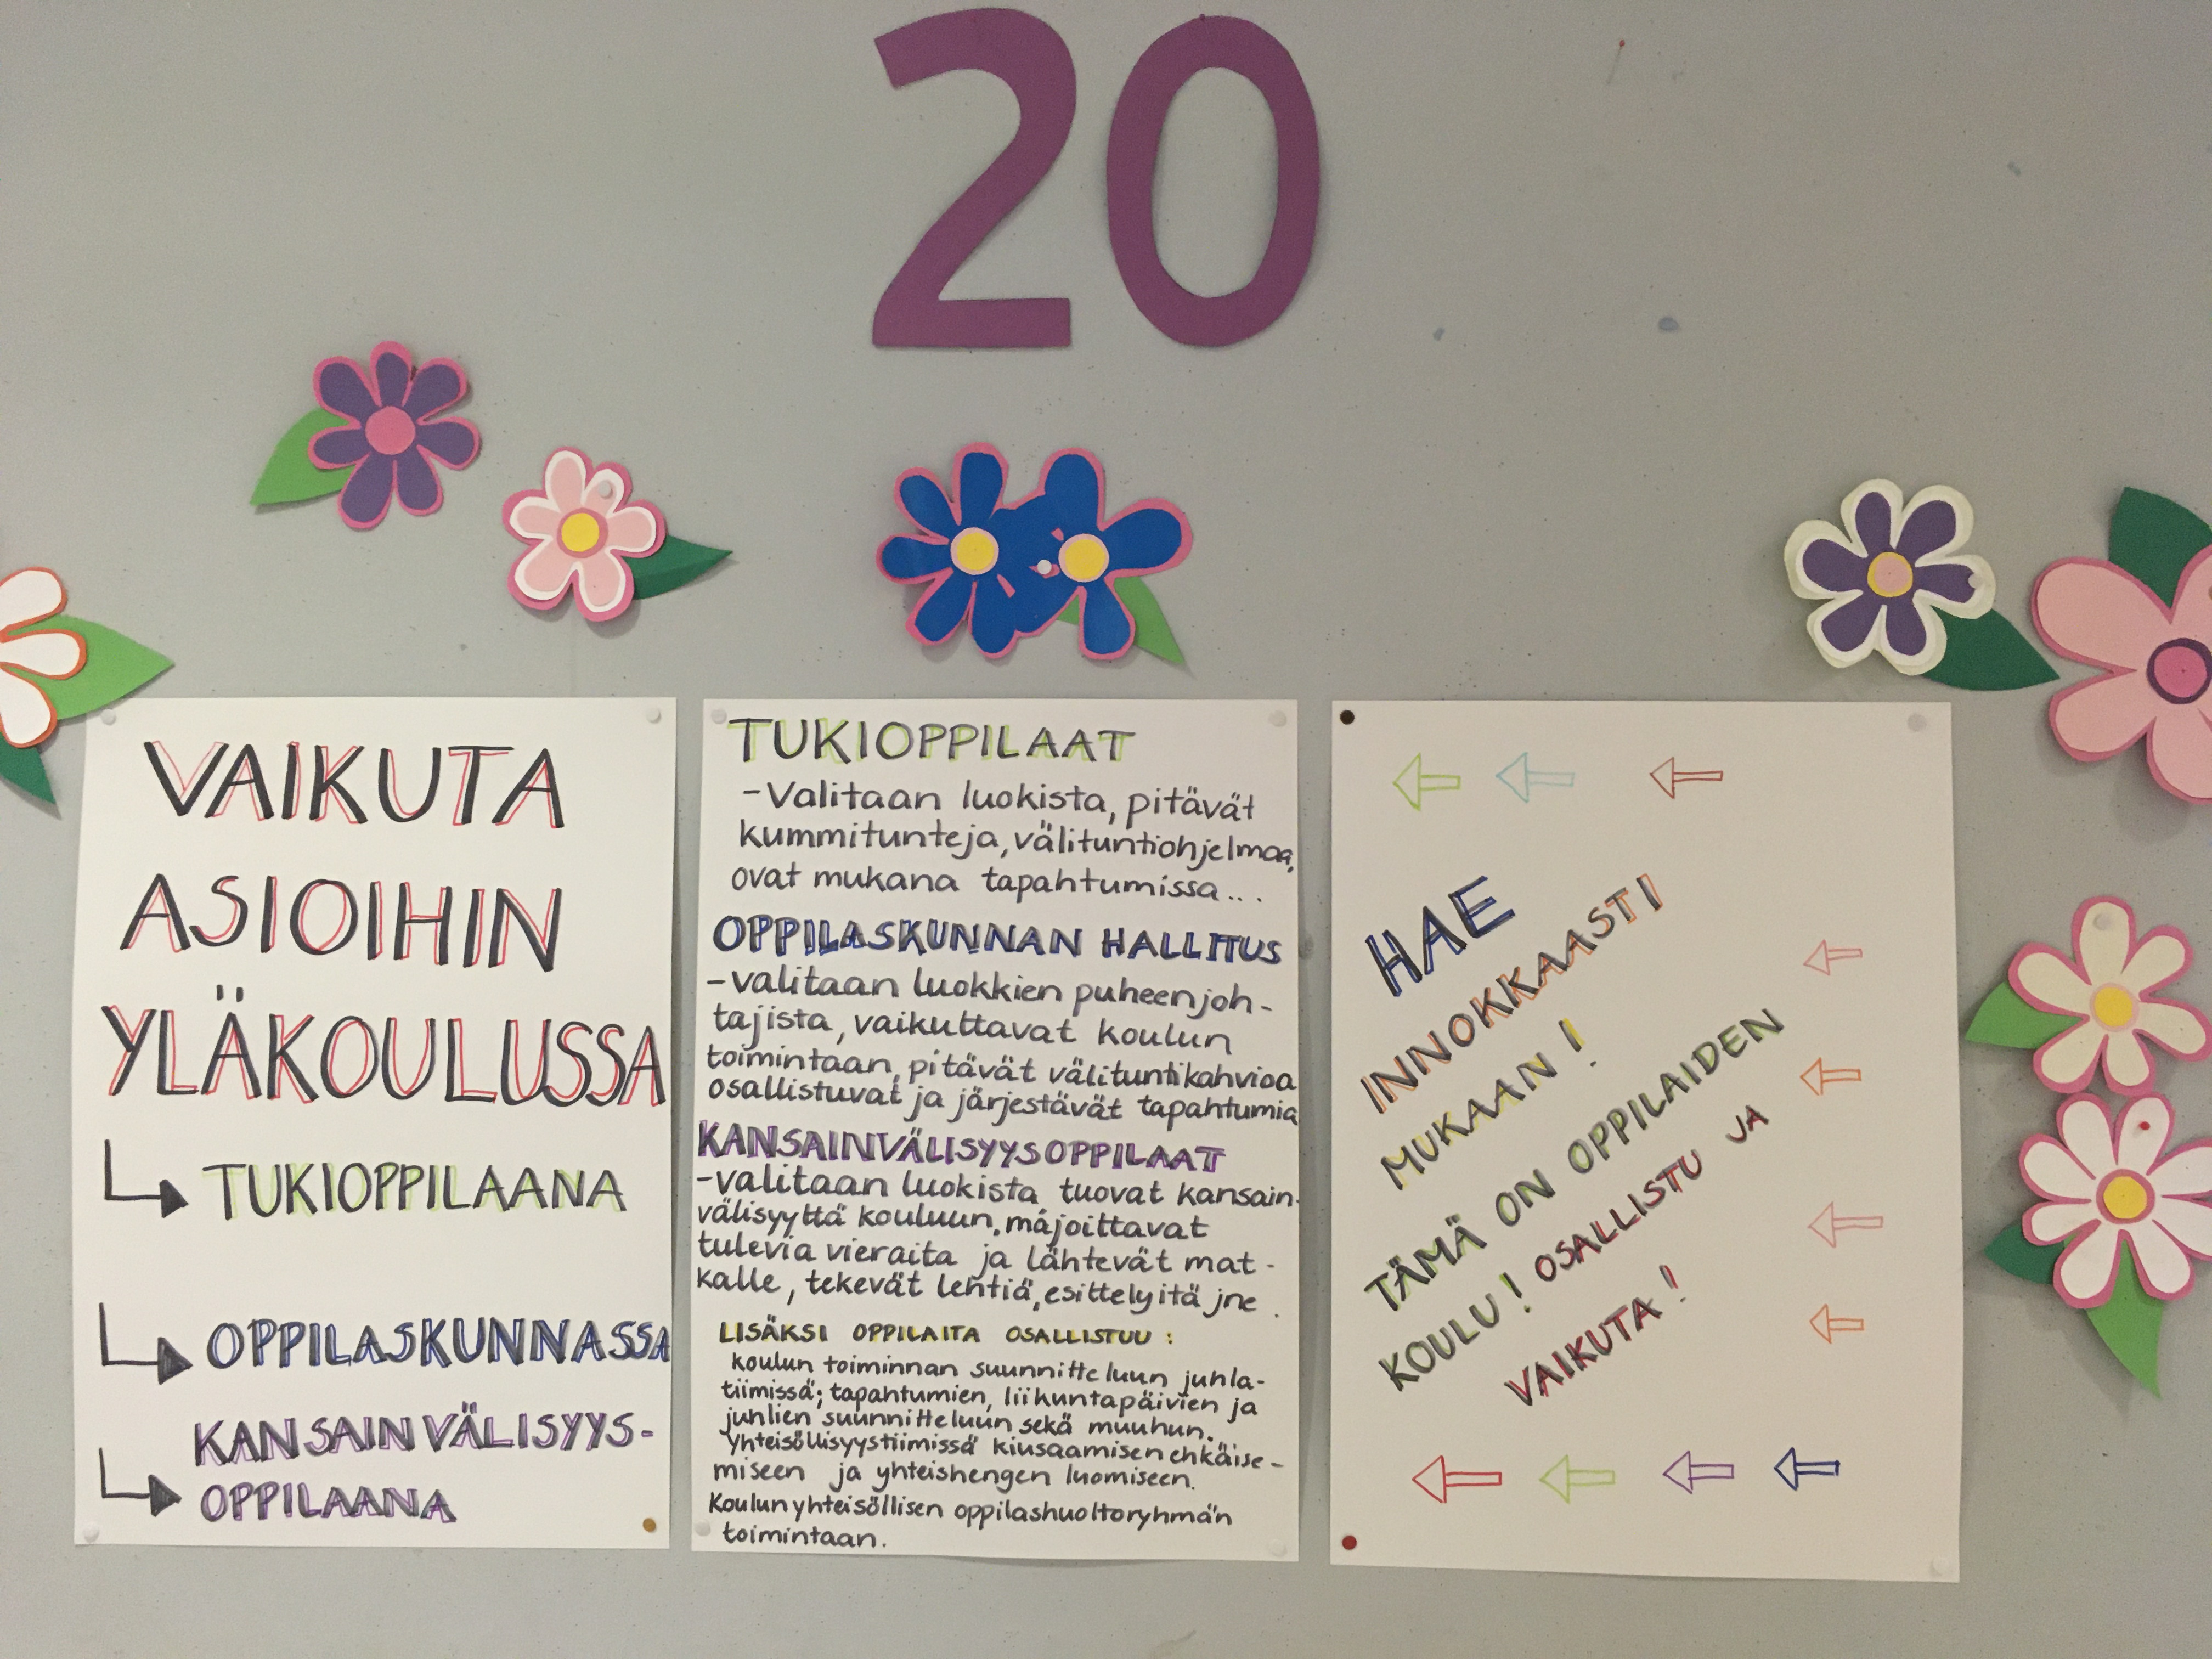 20
VAIKUTA
ASIOIHIN
YLÄKOULUSSA
TUKIOPPILAANA
OPPILASKUNNASSA
KANSAINVÄLISYYS-
OPPILAANA
TUKIOPPILAAT
-Valitaan luokista, pitävät
kummitunteja, välituntiohjelmaa,
ovat mukana tapahtumissa...
OPPILASKUNNAN HALLITUS
-valitaan luokkien puheenjoh-
tajista, vaikuttavat koulun
toimintaan, pitävät välituntikahvioa
osallistuvat ja järjestävät tapahtumia
KANSAINVÄLISYYSOPPILAAT
-valitaan luokista, tuovat kansain-
välisyyttä kouluun, majoittavat
tulevia vieraita ja lähtevät mat-
kalle, tekevät lehtiä, esittelyitä jne.
LISÄKSI OPPILAITA OSALLISTUU:
koulun toiminnan suunnitteluun juhla-
tiimissä; tapahtumien, liikuntapäivien ja
juhlien suunnitteluun sekä muuhun.
Yhteisöllisyystiimissä kiusaamisen ehkäise-
miseen ja yhteishengen luomiseen.
Koulun yhteisöllisen oppilashuoltoryhmän
toimintaan.
HAE
INNOKKAASTI
MUKAAN!
TÄMÄ ON OPPILAIDEN
KOULU! OSALLISTU JA
VAIKUTA!